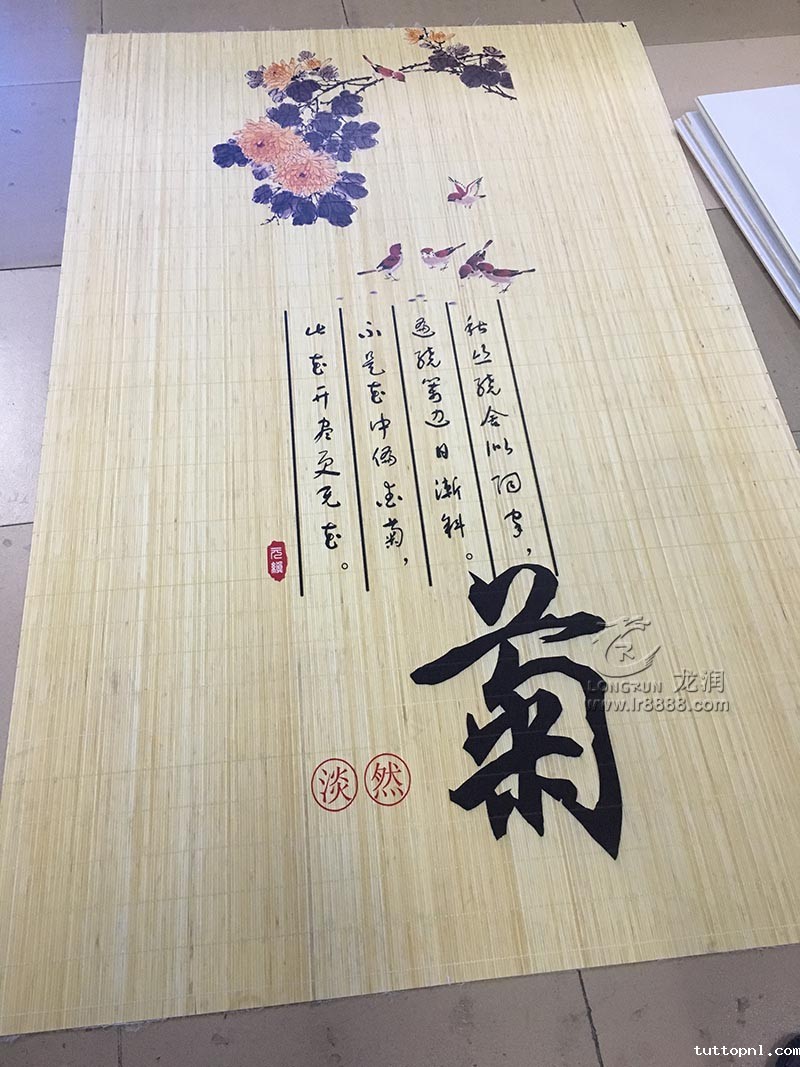 秋丛绕舍似陶家，
遍绕篱边日渐斜。
不是花中偏爱菊，
此花开尽更无花。
元稹
菊
淡然
LONGRUN 龙润
www.lr8888.com
tuttopnl.com